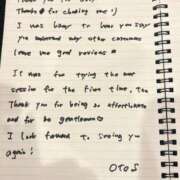 Thanks for choosing me :)
I was happy to hear you say
you understand why other customers
leave me good reviews
It was fun trying the
session for the first time, too
Thank you for being so affectionate
and for be gentleman
I look forward to seeing you
again!
OTOS